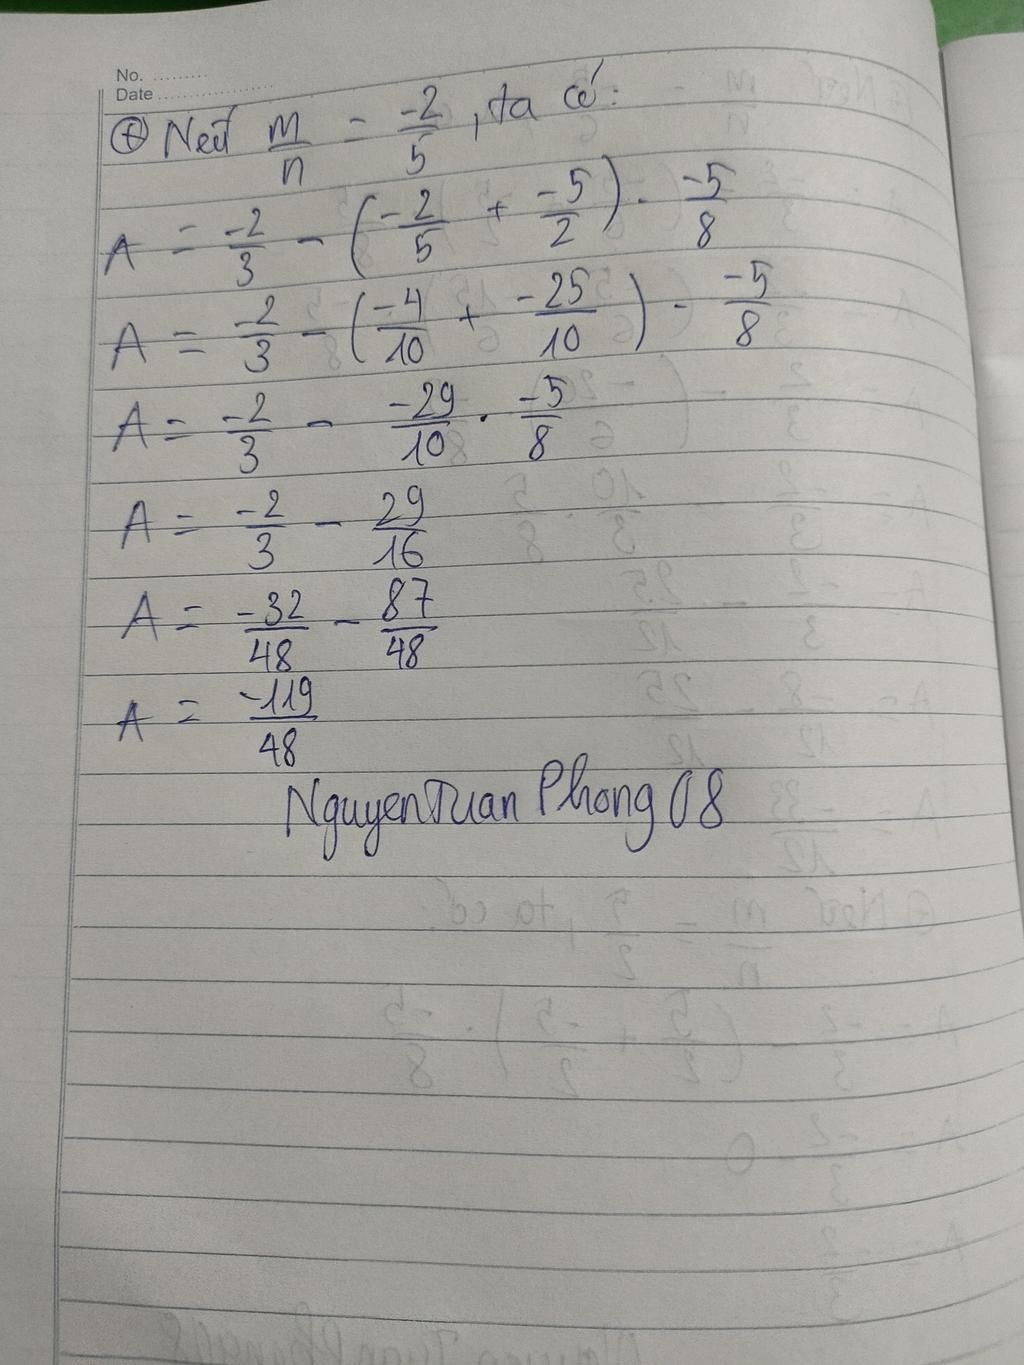 No. .........
Date ....................
⊕ Nếu m/n = -2/5, ta có:
A = -2/3 - (-2/5 + -5/2) . -5/8
A = -2/3 - (-4/10 + -25/10) . -5/8
A = -2/3 - -29/10 . -5/8
A = -2/3 - 29/16
A = -32/48 - 87/48
A = -119/48
NguyenTuan Phong 08